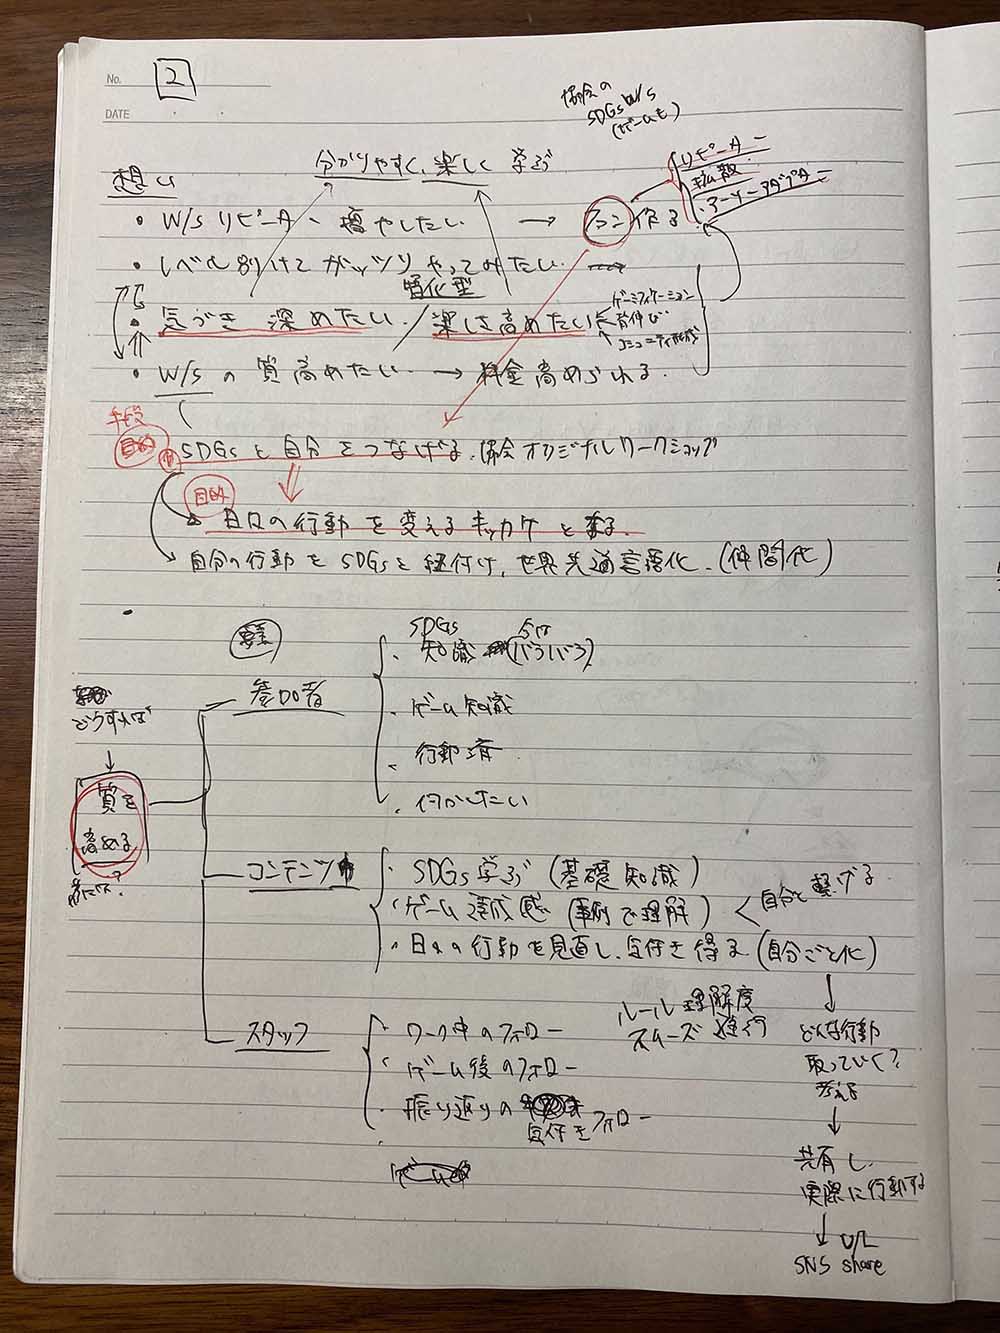 No. 2
DATE
協会の
SDGs W/S
(ゲームも)
分かりやすく、楽しく 学ぶ
想い
リピーター
拡散
アーリーアダプター
・W/S リピーター 増やしたい → ファン作る
・レベル別けて ガッツリ やってみたい
習慣化型
・気づき 深めたい / 楽しさ高めたい
ゲーミフィケーション
背伸び
コミュニティ形成
・W/S の 質 高めたい → 料金 高められる.
手段
目的
SDGs と 自分 をつなげる. 協会オリジナルワークショップ
目的
日々の行動 を 変える キッカケ と なる.
自分の行動を SDGs と 紐付け、世界共通言語化. (仲間化)
要素
どうすれば
質を
高める
為には?
参加者
SDGs
・知識 今は (バラバラ)
・ゲーム知識
・行動済
・何かしたい
コンテンツ
・SDGs 学ぶ (基礎知識)
・ゲーム 達成感 (事例で理解)
自分と 繋げる
・日々の行動を見直し、気付き 得る (自分ごと化)
スタッフ
・ワーク中のフォロー
ルール 理解度
スムーズ 進行
・ゲーム後のフォロー
・振り返りの
気付きフォロー
どんな行動
取っていく?
考える
共有し、
実際に行動する
SNS share